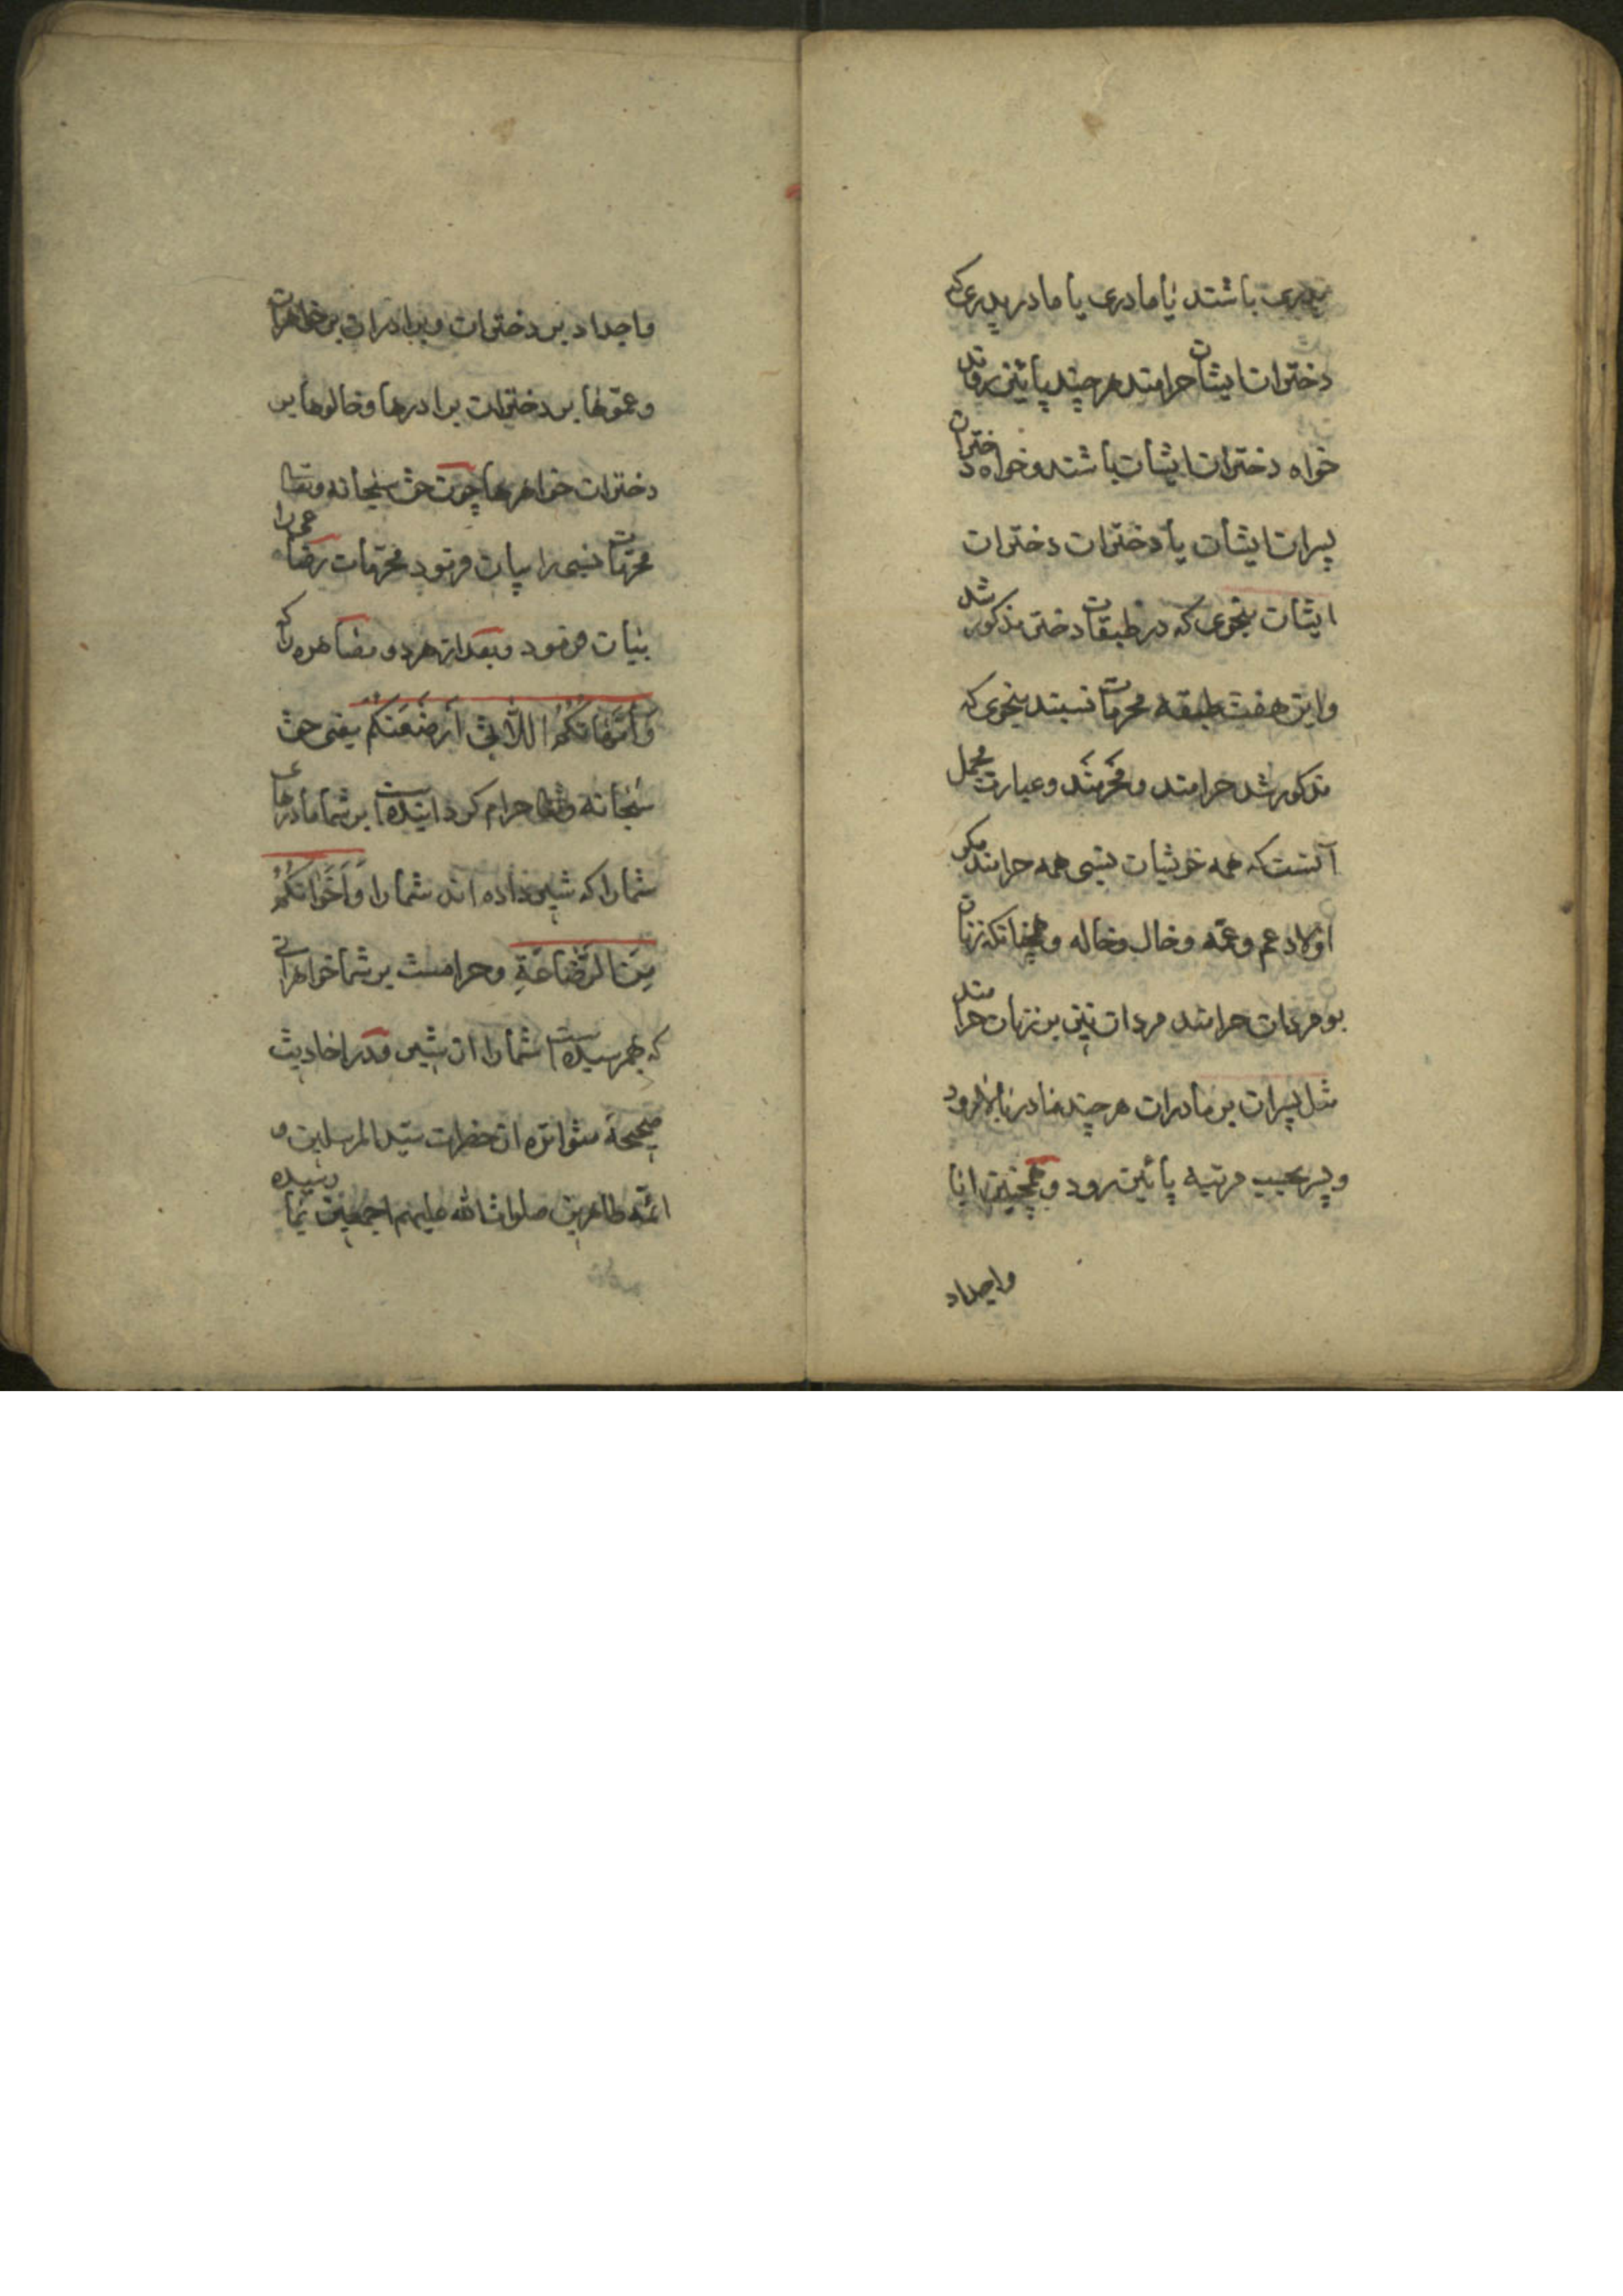 پدری باشند یا مادری یا مادر پدری که
دختران ایشان حرامند هر چند پائین روند
خواه دختران ایشان باشند و خواه دختران
پسران ایشان یا دختران دختران
ایشان بنحوی که در طبقات دختر مذکور شد
و این هفت طبقه محرمات نسبند بنحوی که
مذکور شد حرامند و محرمند و عبارت مجمل
آنست که همه خویشان نسبی همه حرامند مکر
اولاد عم و عمّه و خال و خاله و همچنانکه زنان
بر مردان حرامند مردان نیز بر زنان حرامند
مثل پسران بر مادران هر چند مادر بالا رود
و پسر بحسب مرتبه پائین رود و همچنین ابا
و اجداد
و اجداد بر دختران و برادران بر خواهران
و عمّوها بر دختران برادرها و خالوها بر
دختران خواهرها چون حق سبحانه و تعالی
محرمات نسبی را بیان فرمود محرّمات رضاعی را
بیان فرمود و بعد از هر دو مصاهره را که
وَاُمَّهَاتُكُمُ اللَّاتِی اَرْضَعْنَكُمْ یعنی حق
سبحانه و تعالی حرام کردانیده است بر شما مادرهای
شما را که شیر داده اند شما را وَاَخَوَاتُكُمْ
مِنَ الرَّضَاعَةِ و حرامست بر شما خواهرانی
که بهم رسیده است شما را از شیر و در احادیث
صحیحه متواتره از حضرت سیّد المرسلین و
ائمّه طاهرین صلوات الله علیهم اجمعین بما رسیده